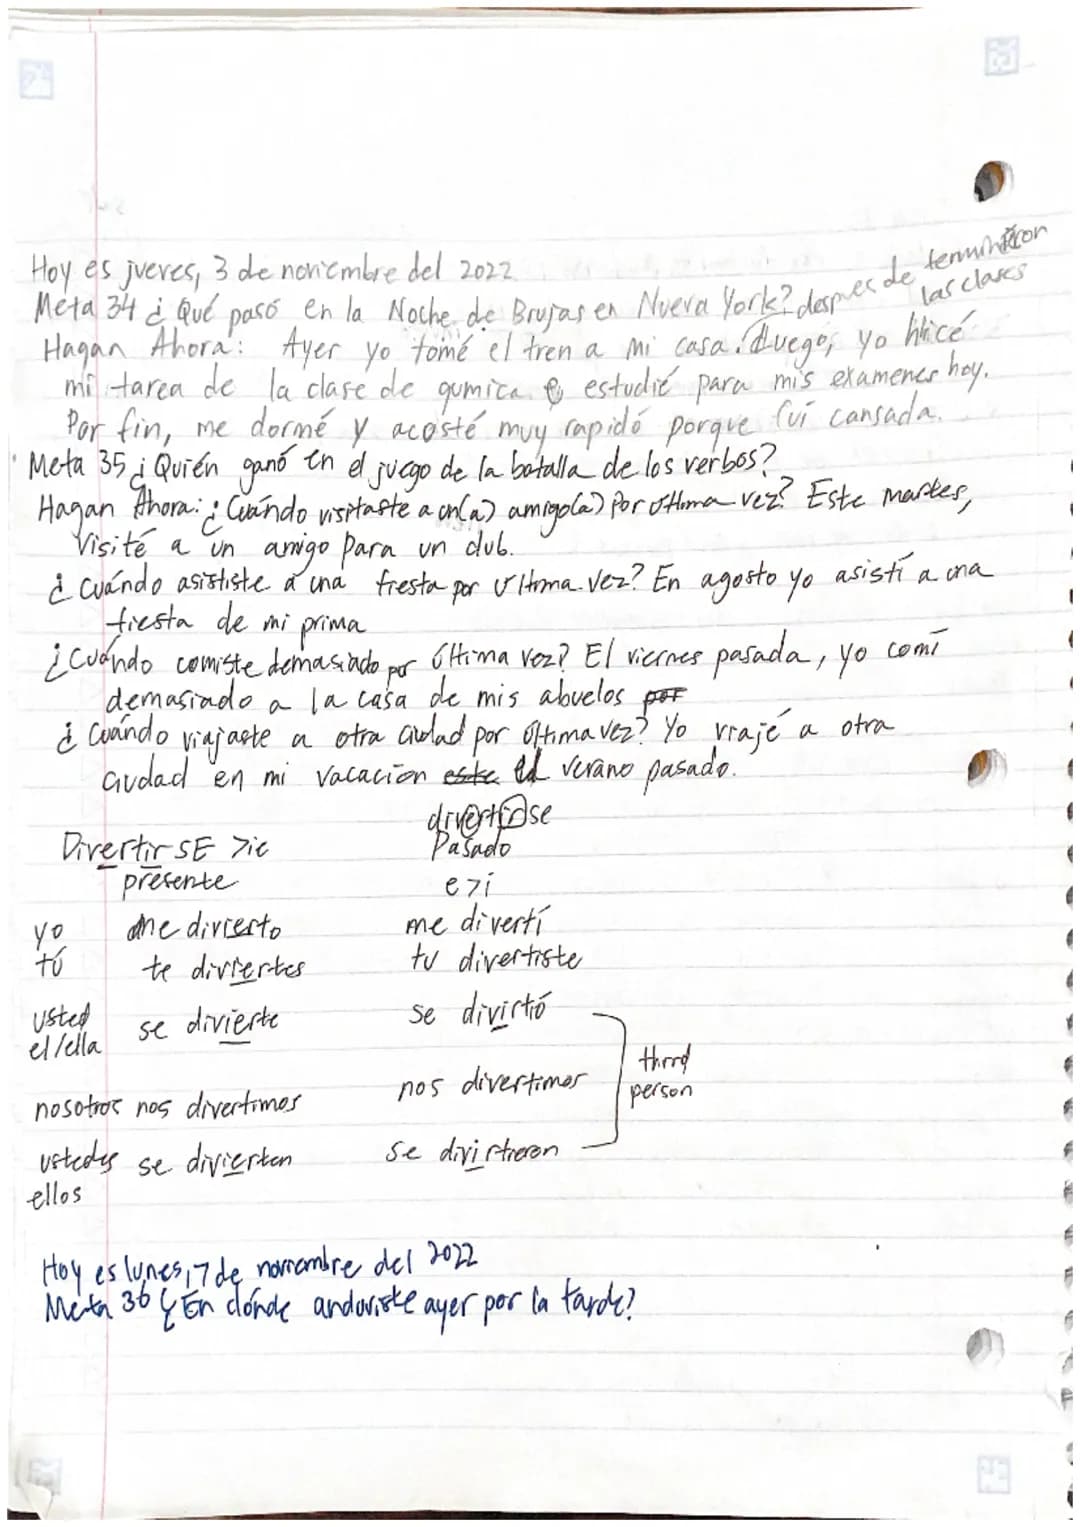 Hoy es jueves, 3 de noviembre del 2022
Meta 34 ¿ Qué pasó en la Noche de Brujas en Nueva York? despues de terminaron
las clases
Hagan Ahora: Ayer yo tomé el tren a mi casa. Luego, yo hicé
mi tarea de la clase de qumica e estudié para mis examenes hoy.
Por fin, me dormé y acosté muy rapidó porque fuí cansada.
Meta 35 ¿ Quién ganó en el juego de la batalla de los verbos?
Hagan Ahora: ¿ Cuándo visitaste a un(a) amigo(a) por última vez? Este martes,
visité a un amigo para un club.
¿ Cuándo asististe a una fiesta por última vez? En agosto yo asistí a una
fiesta de mi prima
¿ Cuándo comiste demasiado por última vez? El viernes pasada, yo comí
demasiado a la casa de mis abuelos por
¿ Cuándo viajaste a otra ciudad por última vez? Yo viajé a otra
ciudad en mi vacacion este el verano pasado.
divertirse
Divertir SE >ie Pasado
presente e>i
yo me divierto me divertí
tú te diviertes tu divertiste
usted se divierte se divirtió
el/ella
third
nosotros nos divertimos nos divertimos person
ustedes se divierten se divirtieron
ellos
Hoy es lunes, 7 de noviembre del 2022
Meta 36 ¿ En dónde anduviste ayer por la tarde?